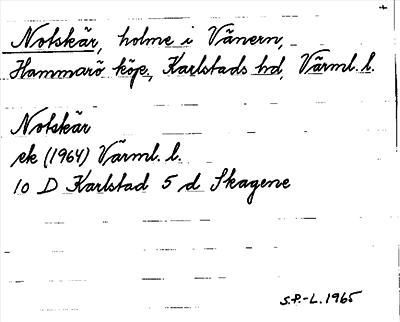 Notskär, holme i Vänern,
Hammarö köp., Karlstads hd, Värml. l.
Notskär
ek (1964) Värml. l.
10 D Karlstad 5 d Skagene
S.P.-L. 1965